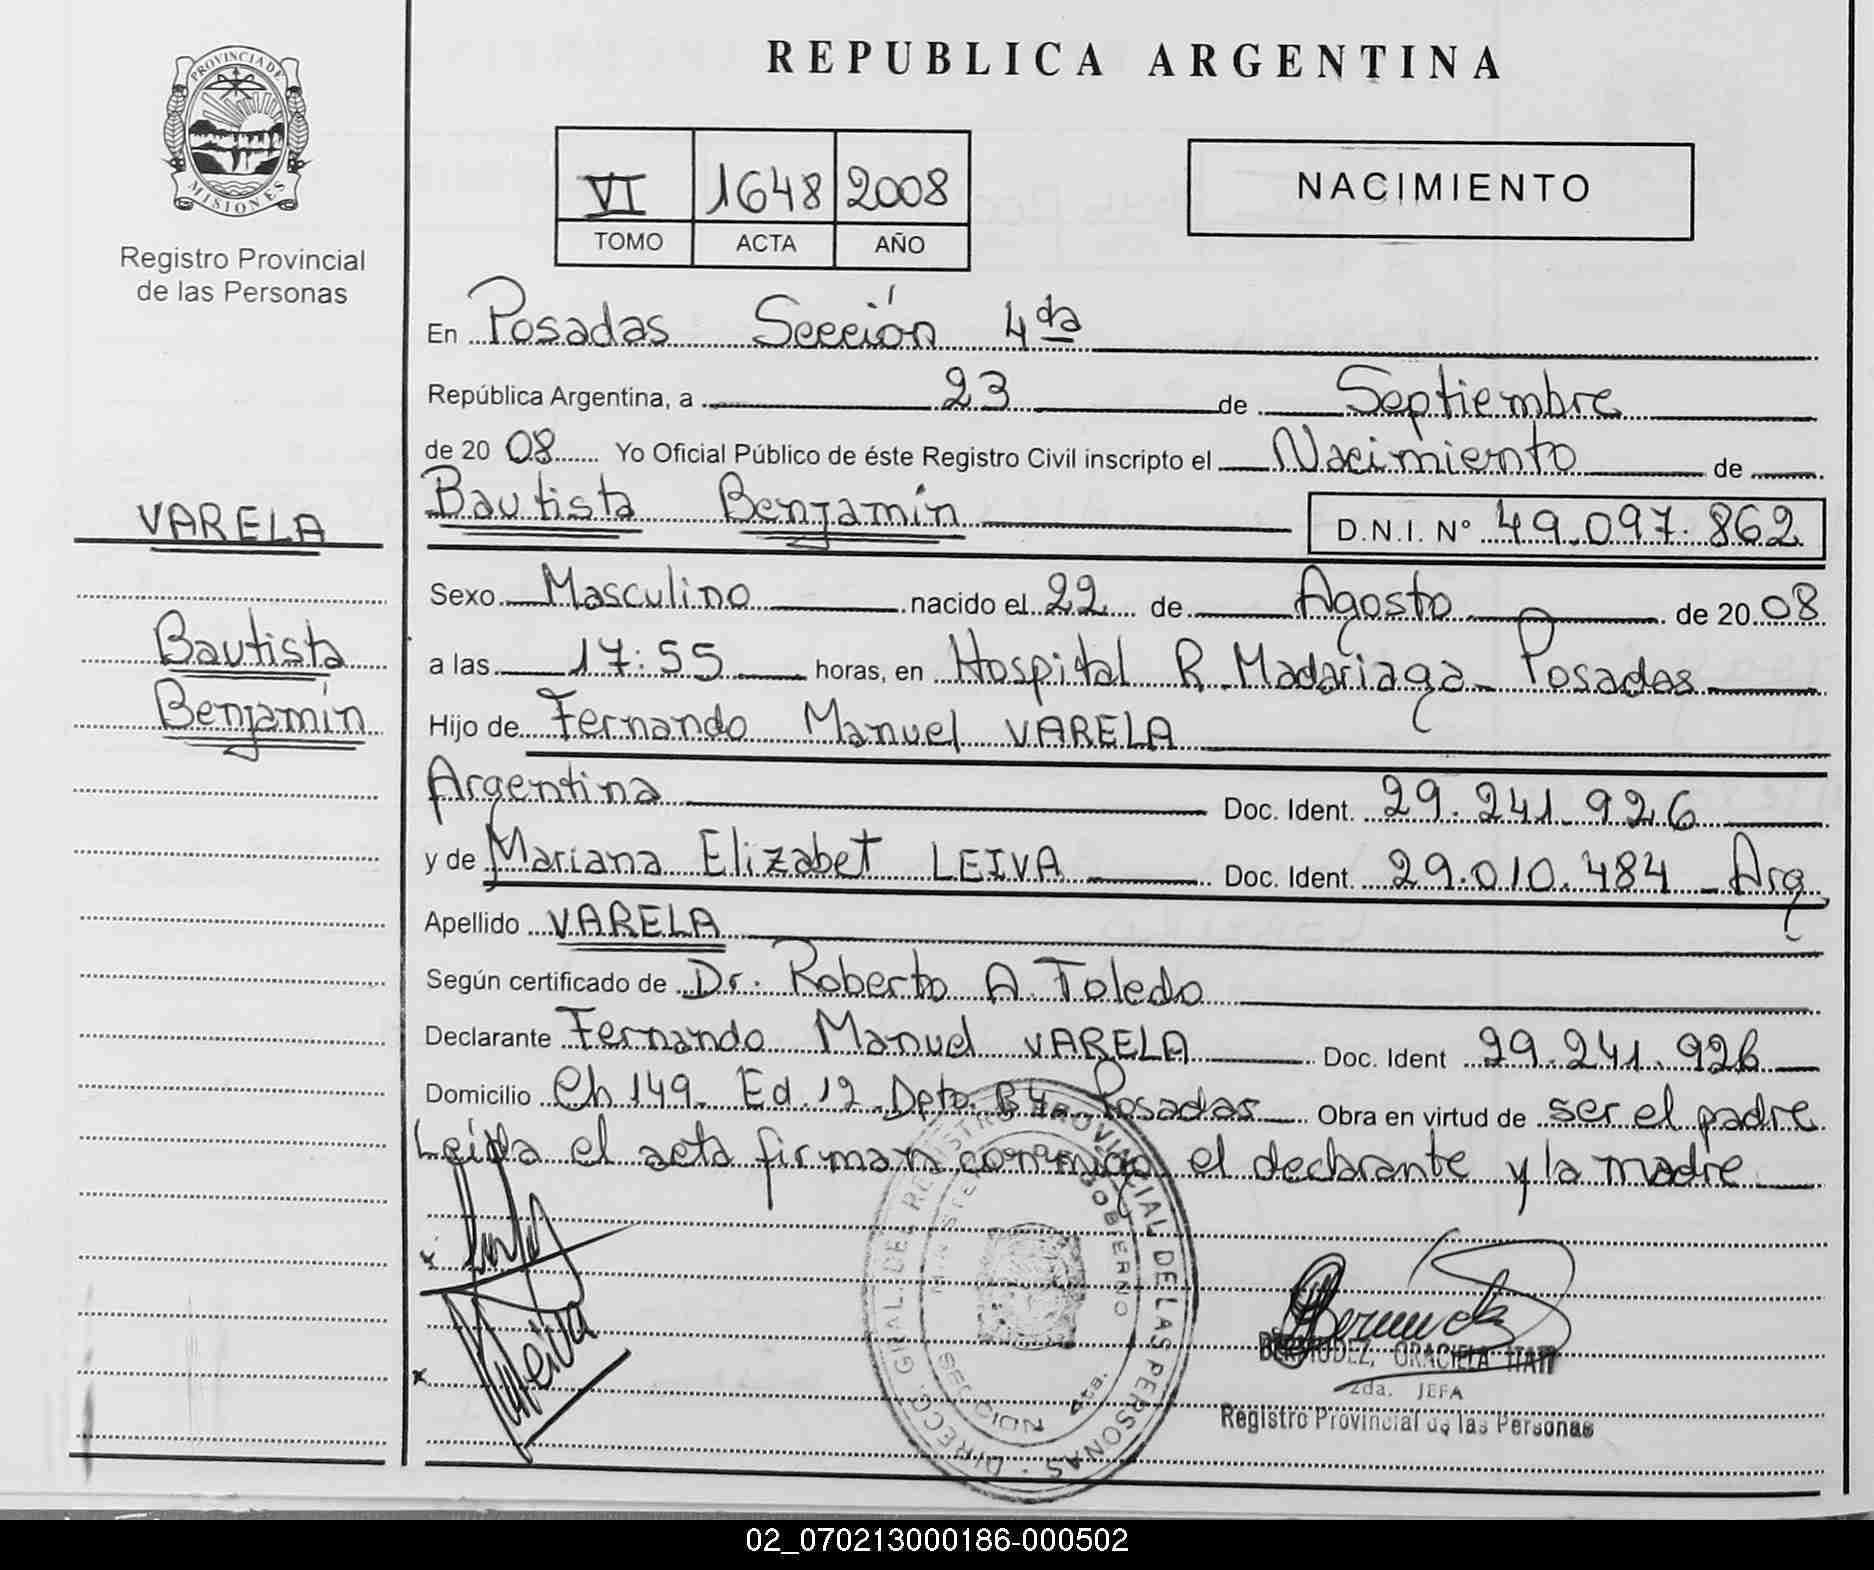 PROVINCIA DE
MISIONES
Registro Provincial
de las Personas
VARELA
Bautista
Benjamín
REPUBLICA ARGENTINA
VI 1648 2008
TOMO ACTA AÑO
NACIMIENTO
En Posadas Sección 4da
República Argentina, a 23 de Septiembre
de 20 08 Yo Oficial Público de éste Registro Civil inscripto el Nacimiento de
Bautista Benjamín D.N.I. N° 49.097.862
Sexo Masculino nacido el 22 de Agosto de 20 08
a las 17:55 horas, en Hospital R. Madariaga - Posadas
Hijo de Fernando Manuel VARELA
Argentina Doc. Ident. 29.241.926
y de Mariana Elizabet LEIVA Doc. Ident. 29.010.484 Arg
Apellido VARELA
Según certificado de Dr. Roberto A. Toledo
Declarante Fernando Manuel VARELA Doc. Ident 29.241.926
Domicilio Ch 149. Ed. 12 Dpto. B4. Posadas Obra en virtud de ser el padre
Leida el acta firman conmigo, el declarante y la madre
DIRECC. GRAL. DEL REGISTRO PROVINCIAL DE LAS PERSONAS
MINISTERIO DE GOBIERNO
SECCION 4ta.
x
x Leiva
BERMUDEZ, GRACIELA ITATI
2da. JEFA
Registro Provincial de las Personas
02_070213000186-000502